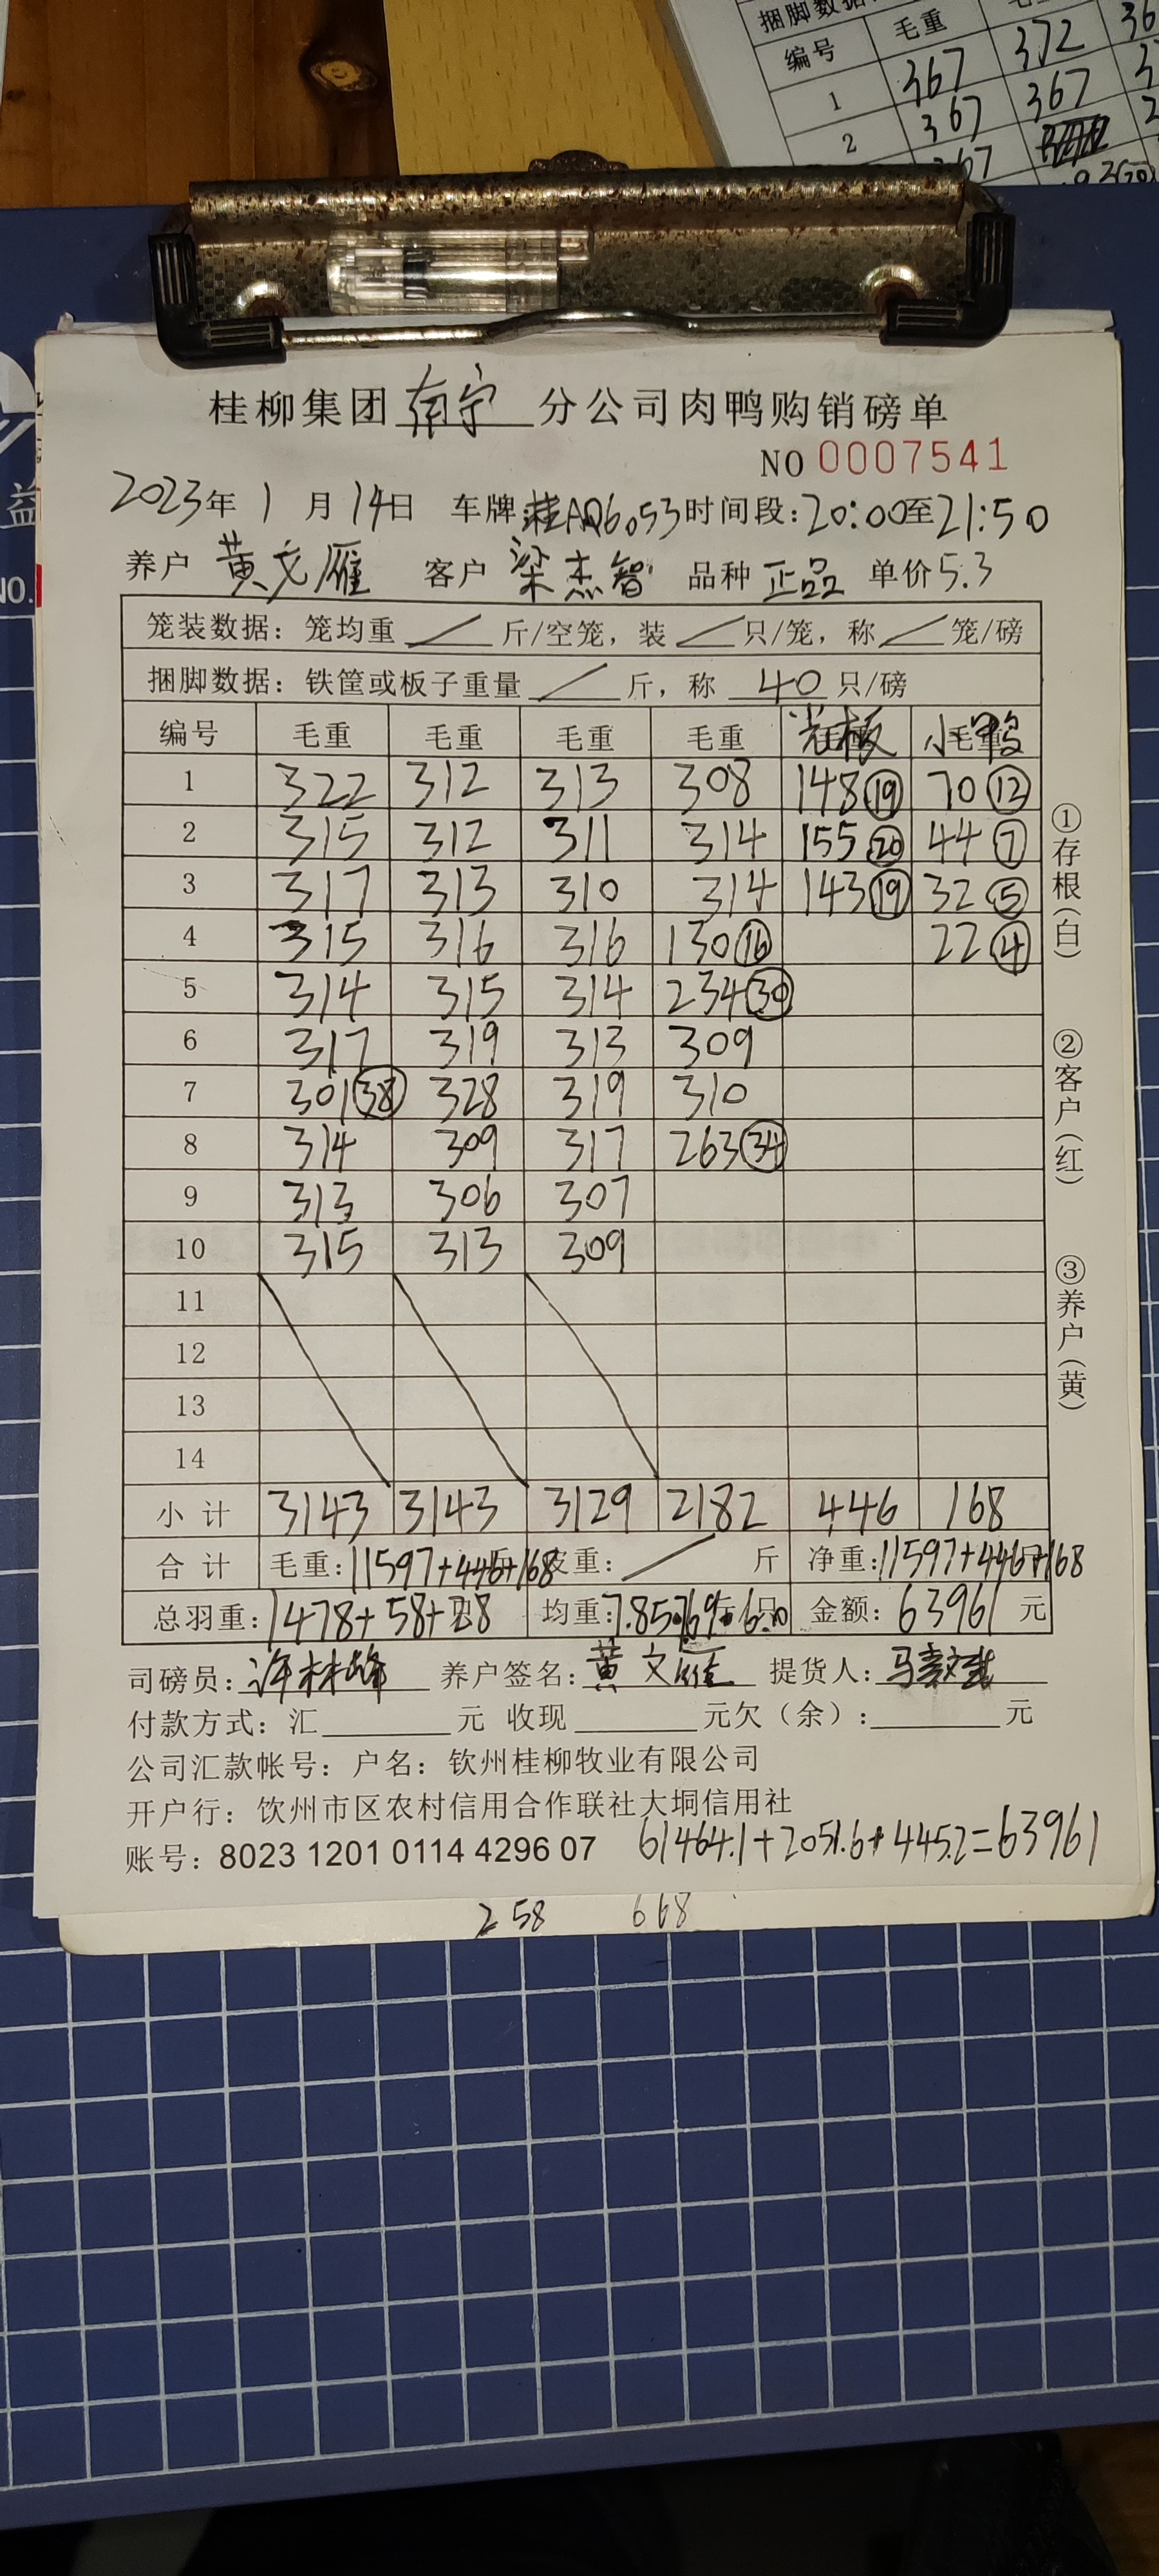 捆脚数据
编号 毛重
1 367 372 36
2 367 367
367
益
NO.
桂柳集团南宁分公司肉鸭购销磅单
NO 0007541
2023年1月14日 车牌:桂AQ6053 时间段:20:00至21:50
养户 黄文雁 客户 梁杰智 品种 正品 单价5.3
笼装数据：笼均重 / 斤/空笼，装 / 只/笼，称 / 笼/磅
捆脚数据：铁筐或板子重量 / 斤，称 40 只/磅
编号 毛重 毛重 毛重 毛重 光板 小毛鸭
1 322 312 313 308 148⑲ 70⑫
2 315 312 311 314 155⑳ 44⑦
3 317 313 310 314 143⑲ 32⑤
4 315 316 316 130⑯ 22④
5 314 315 314 234㉚
6 317 319 313 309
7 301㊳ 328 319 310
8 314 309 317 263㉞
9 313 306 307
10 315 313 309
11
12
13
14
小计 3143 3143 3129 2182 446 168
合计 毛重:11597+446+168 皮重: / 斤 净重:11597+446+168
总羽重:1478+58+28 均重:7.85 7.69 6.0 金额:63961元
司磅员: 养户签名:黄文雁 提货人:
付款方式：汇 元 收现 元欠（余）: 元
公司汇款帐号：户名：钦州桂柳牧业有限公司
开户行：钦州市区农村信用合作联社大垌信用社
账号：8023 1201 0114 4296 07 61464.1+2051.6+445.2=63961
258 668
①存根(白)
②客户(红)
③养户(黄)